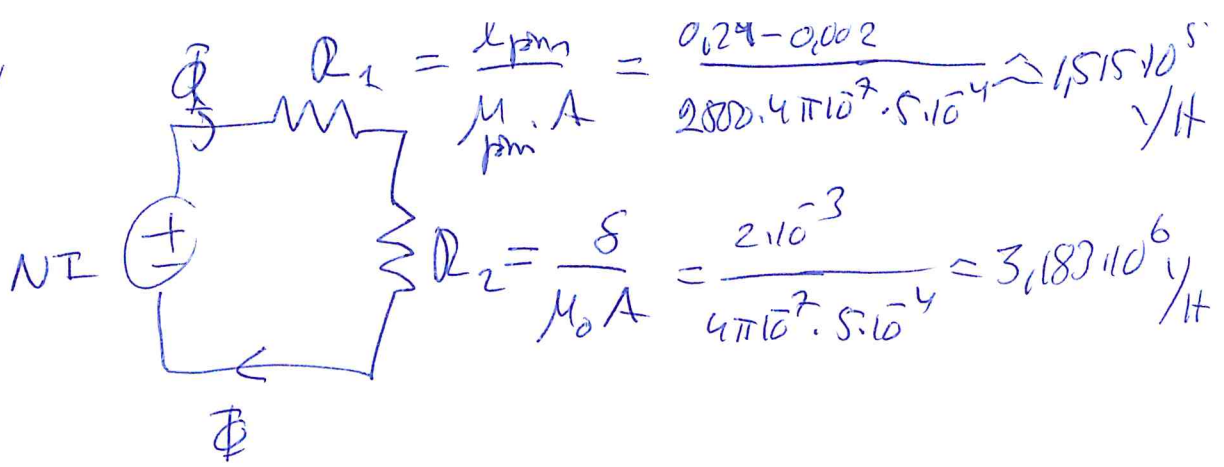 Φ R₁ = l järn / μ järn · A = 0,24-0,002 / 2500·4π10⁻⁷·5·10⁻⁴ ≈ 1,515·10⁵ 1/H
NI + - R₂ = δ / μ₀ A = 2·10⁻³ / 4π10⁻⁷·5·10⁻⁴ = 3,183·10⁶ 1/H
Φ